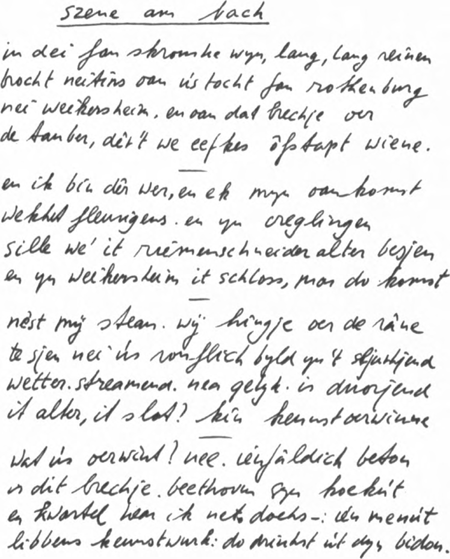 szene am bach
in dei fan wyn, lang, lang reinen
brocht oan ús tocht fan rothenburg
nei weikersheim. en oan dat brechje oer
de tauber, dêr't we eefkes ôfstapt wiene.
en ik bin dêr wer, en ek myn oankomst
wekket fleurigens. en yn creglingen
sille we it riemenschneider alter besjen
en yn weikersheim it schloss, mar do komst
nêst my stean. wy hingje oer de râne
te sjen nei ús byld yn 't
wetter. streamend. nea gelyk. is duorjend
it alter, it slot? kin keunst oerwinne
wat ús oerwint? nee. ienfâldich beton
is dit brechje. beethoven syn koekút
en kwartel hear ik net. dochs –: ien menút
libbens keunstwurk: do drinkst út dyn bidon.